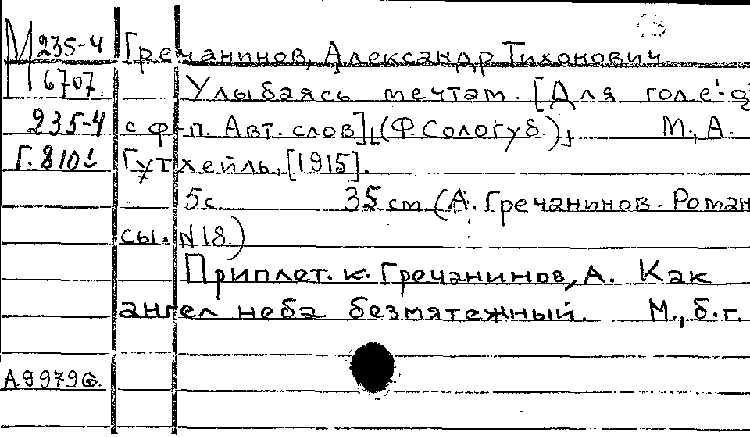 М 235-4 Гречанинов, Александр Тихонович
6707 Улыбаясь мечтам. [Для гол.
235-4 с ф-п. Авт. слов] (Ф. Сологуб.), М., А.
Г. 810 Гутхейль, [1915].
5с. 35 см (А. Гречанинов. Роман
сы. N 18.)
Приплет. к. Гречанинов, А. Как
ангел неба безмятежный. М., б.г.
А9979б.